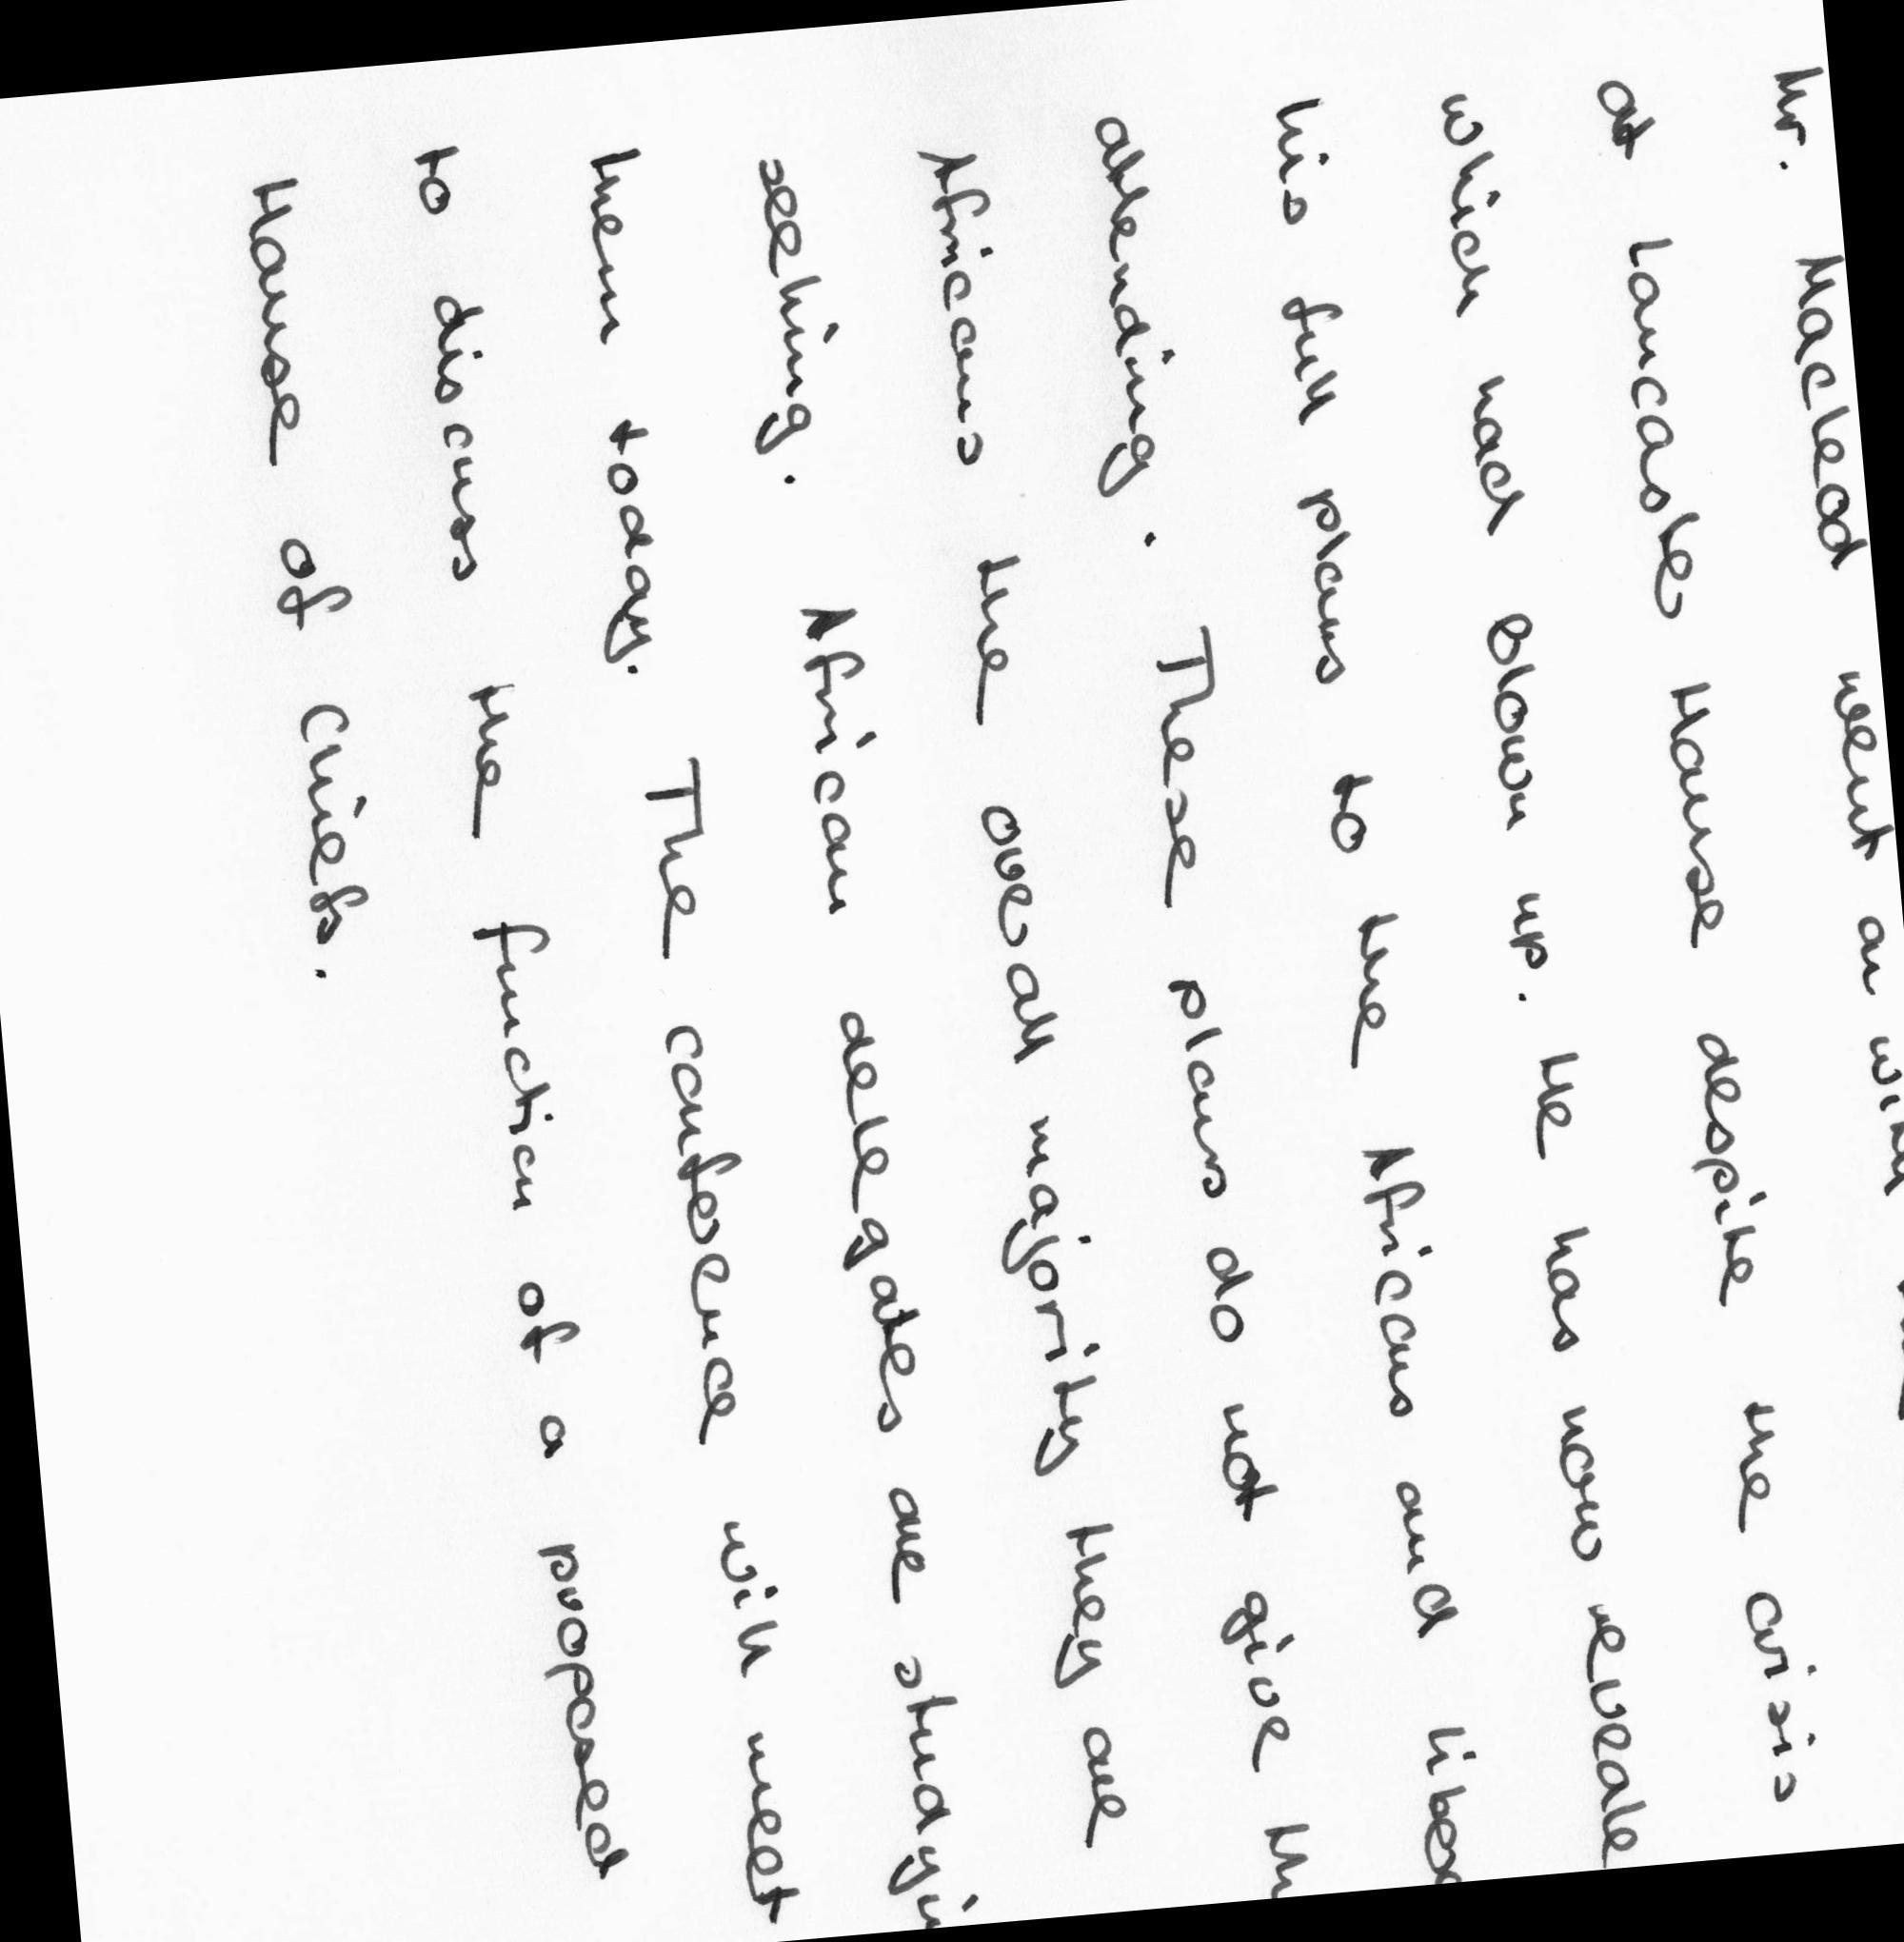 Mr. Macleod went on with
at Lancaster House despite the crisis
which had blown up. He has now reveale
his full plans to the Africans and liber
attending. These plans do not give th
Africans the overall majority they are
seeking. African delegates are studyin
them today. The conference will meet
to discuss the function of a proposed
House of Chiefs.